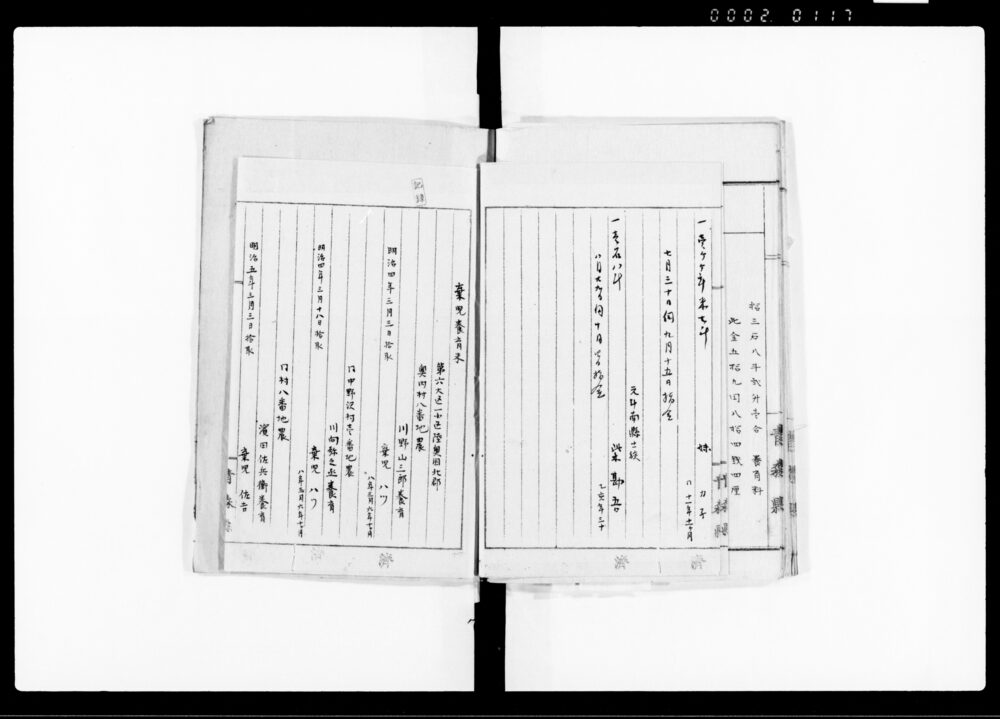 0002 0117
拾三石八斗弐升壱合 養育料
此金五拾九円八拾四銭四厘
青森県
妹 カ子
一壱ケ年米七斗
七月三十日伺九月十五日指令
元斗南縣士族
柴 勘吾
乙亥年三十
一壱石八斗
記録
棄児養育米
第六大区一小区陸奥国北郡
奥内村八番地農
川野山三郎養育
棄児 ハツ
八年三月六年七ヶ月
明治四年三月三日拾取
同中野沢村壱番地農
川向弥之丞養育
棄児 ハツ
八年三月六年七ヶ月
明治四年三月十八日拾取
同村八番地農
濱田佐兵衛養育
棄児 佐吉
明治五年三月三日拾取
青森県